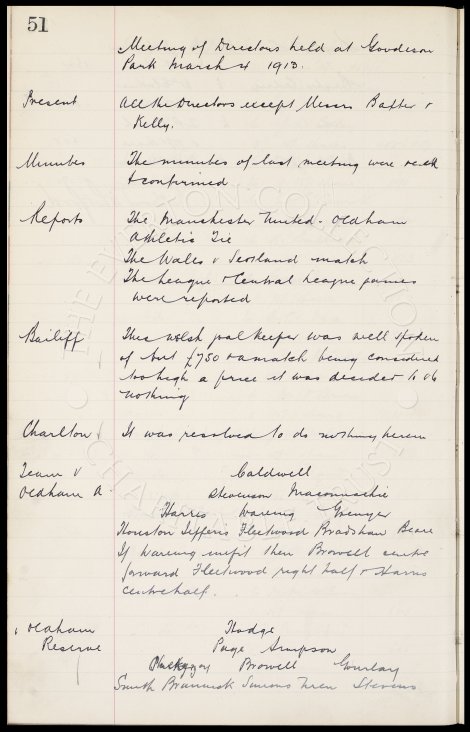 51
Meeting of Directors held at Goodison
Park March 4 1913.
Present All the Directors except Messrs Baxter &
Kelly.
Minutes The minutes of last meeting were read
& confirmed
Reports The Manchester United - Oldham
Athletic Tie
The Wales v Scotland match
The League & Central League games
were reported
Bailiff This Welsh goalkeeper was well spoken
of but £750 & a match being considered
too high a price it was decided to do
nothing
Charlton It was resolved to do nothing herein
Team v Caldwell
Oldham A. Stevenson Maconnachie
Harris Wareing Grenyer
Houston Jefferis Fleetwood Bradshaw Beare
If Wareing unfit then Browell centre
forward Fleetwood right half & Harris
centre half.
v Oldham Hodge
Reserve Page Simpson
Browell Gourlay
Smith Brannick Simons Stevens
THE EVERTON COLLECTION
CHARITABLE TRUST